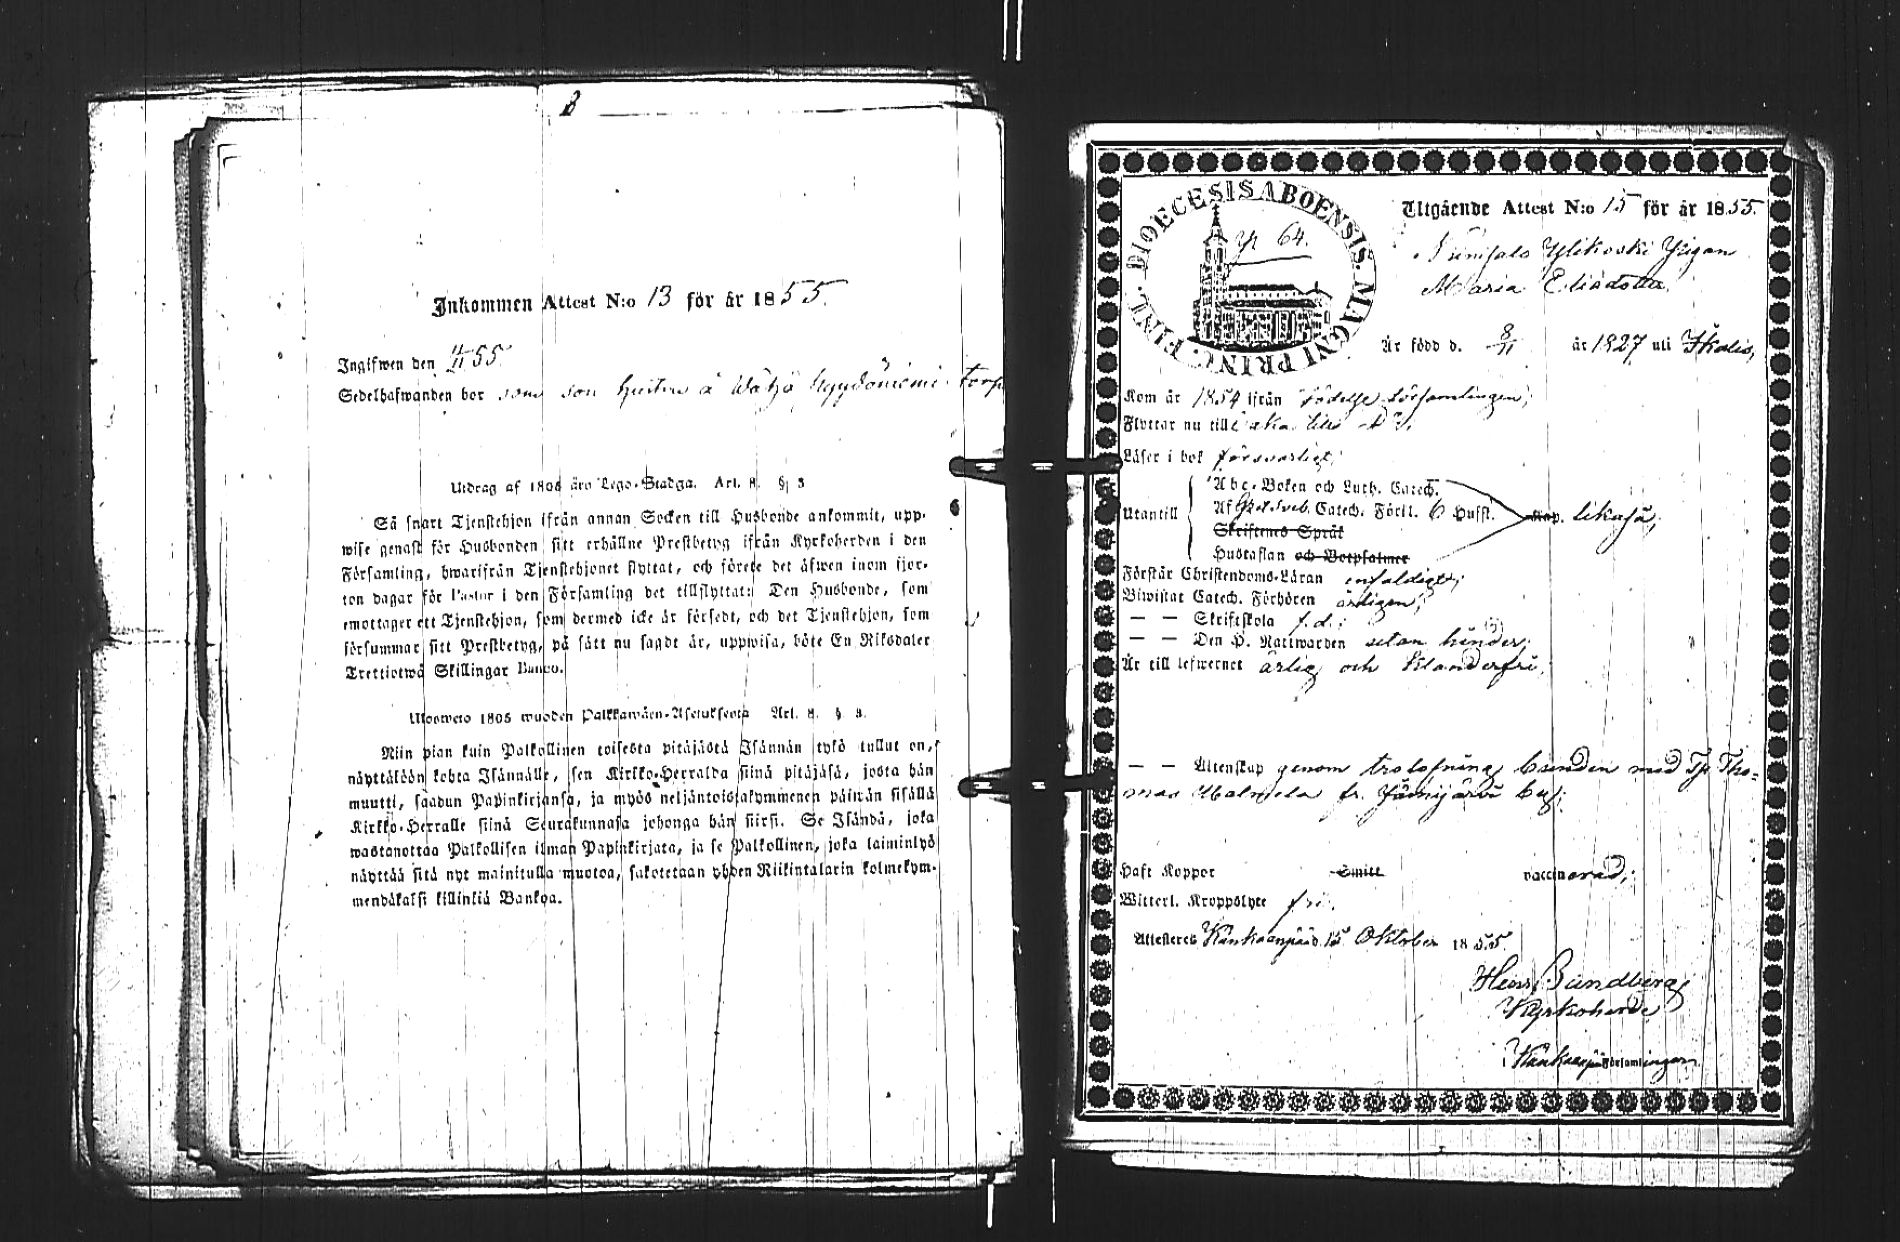 Inkommen Attest N:o 13 för år 1855.
Ingifwen den 4/11 55.
Sedelhafwanden bor som hustru å torp
Utdrag af 1805 års Lego-Stadga. Art. 8. § 3
Så snart Tjenstehjon ifrån annan Socken till Husbonde ankommit, upp-
wise genast för Husbonden sitt erhållne Prestbetyg ifrån Kyrkoherden i den
Församling, hwarifrån Tjenstehjonet flyttat, och förete det äfwen inom fjor-
ton dagar för Pastor i den Församling det tillflyttat: Den Husbonde, som
emottager ett Tjenstehjon, som dermed icke är försedt, och det Tjenstehjon, som
försummar sitt Prestbetyg, på sätt nu sagdt är, uppwisa, böte En Riksdaler
Trettiotwå Skillingar Banco.
Ulosweto 1805 wuoden Palkkawäen-Asetuksesta Art. 8. § 3.
Niin pian kuin Palkollinen toisesta pitäjästä Isännän tykö tullut on,
näyttäköön kohta Isännälle, sen Kirkko-Herralda siinä pitäjäsä, josta hän
muutti, saadun Papinkirjansa, ja myös neljäntoistakymmenen päiwän sisällä
Kirkko-Herralle siinä Seurakunnasa johonga hän siirsi. Se Isändä, joka
wastanottaa Palkollisen ilman Papinkirjata, ja se Palkollinen, joka laiminlyö
näyttää sitä nyt mainitulla muotoa, sakotetaan yhden Riikintalarin kolmekym-
mendäkaksi killinkiä Bankoa.
DIOECESIS ABOENSIS. MAGNI PRINC. FINL.
64.
Utgående Attest N:o 15 för år 1855.
Niinisalo Ylikoski Pigan
Maria Eliædotter
Är född d. 8/11 år 1827 uti Ikalis,
Kom år 1854 ifrån födelse församlingen;
Flyttar nu till
Läser i bok försvarligt;
Utantill
Abc-Boken och Luth. Catech.
Af Sveb. Catech. Förkl. 6 Hufst. Kap. likaså;
Skriftenes Språk
Hustaflan och Botpsalmer
Förstår Christendoms-Läran enfaldigt;
Biwistat Catech. Förhören årligen;
— — Skriftskola f.d.;
— — Den H. Nattwarden utan hinder;
Är till lefwernet ärlig och klanderfri;
— — Äktenskap genom trolofning bunden med Tho-
mas Malmela fr. Jämijärvi
Haft Koppor Smitt vaccinerad;
Witterl. Kroppslyte fri.
Attesteres Kankaanpää d. 15 Oktober 1855.
Kyrkoherde
Kankaanpää Församlingen